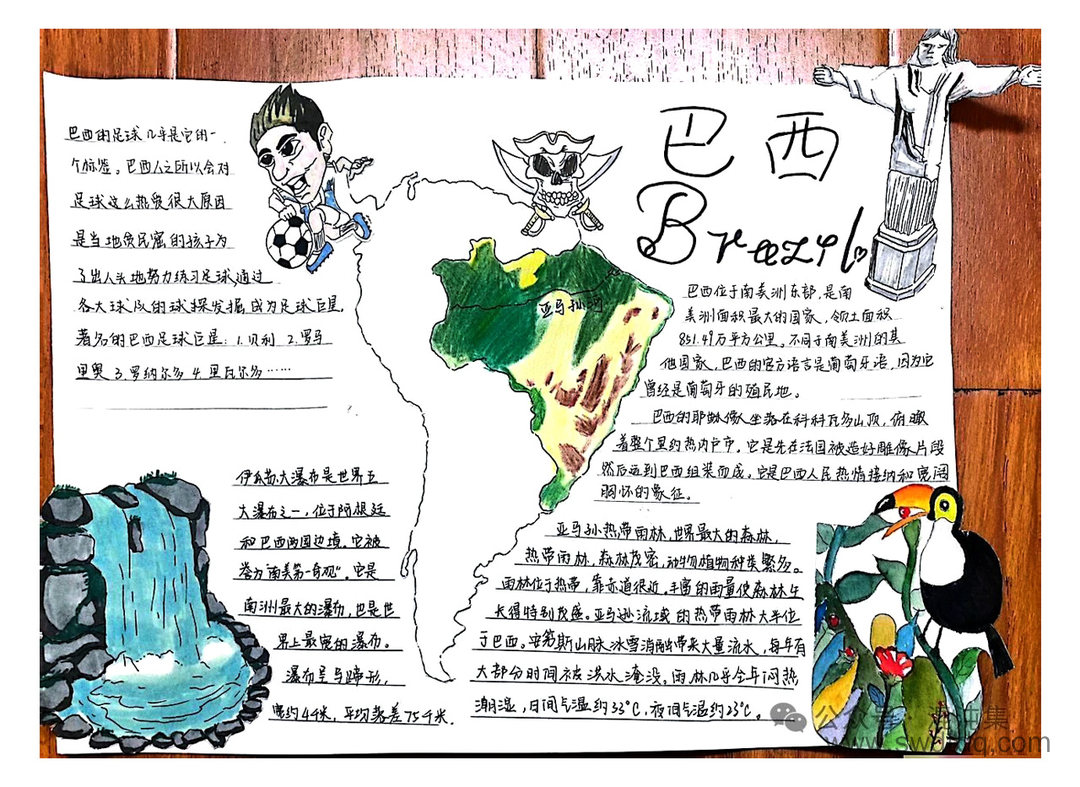 巴西
Brazil
巴西的足球几乎是它的一
个标签。巴西人之所以会对
足球这么热爱很大原因
是当地贫民窟的孩子为
了出人头地努力练习足球,通过
各大球队的球探发掘成为足球巨星。
著名的巴西足球巨星:1.贝利 2.罗马
里奥 3.罗纳尔多 4.里瓦尔多……
亚马孙河
巴西位于南美洲东部,是南
美洲面积最大的国家,领土面积
851.49万平方公里。不同于南美洲的其
他国家,巴西的官方语言是葡萄牙语,因为它
曾经是葡萄牙的殖民地。
巴西的耶稣像坐落在科科瓦多山顶,俯瞰
着整个里约热内卢市。它是先在法国被造好雕像片段
然后运到巴西组装而成。它是巴西人民热情接纳和宽阔
胸怀的象征。
伊瓜苏大瀑布是世界五
大瀑布之一,位于阿根廷
和巴西两国边境。它被
誉为"南美第一奇观"。它是
南洲最大的瀑布,也是世
界上最宽的瀑布。
瀑布呈马蹄形,
宽约4千米,平均落差75千米.
亚马孙热带雨林,世界最大的森林,
热带雨林,森林茂密,动物植物种类繁多。
雨林位于热带,靠赤道很近,丰富的雨量使森林生
长得特别茂盛。亚马逊流域的热带雨林大半位
于巴西。安第斯山脉冰雪消融带来大量流水,每年有
大部分时间被洪水淹没。雨林几乎全年闷热
潮湿,日间气温约33℃,夜间气温约23℃。
公众号